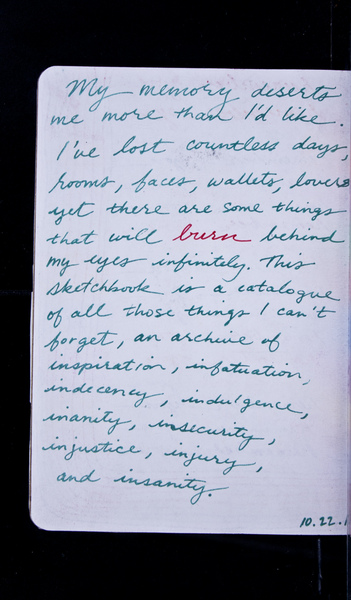 My memory deserts
me more than I'd like.
I've lost countless days,
rooms, faces, wallets, lovers
yet there are some things
that will burn behind
my eyes infinitely. This
sketchbook is a catalogue
of all those things I can't
forget, an archive of
inspiration, infatuation,
indecency, indulgence,
inanity, insecurity,
injustice, injury,
and insanity.
10.22.